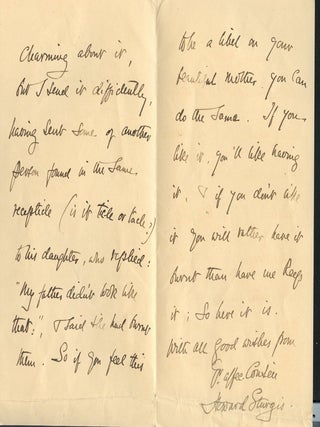 charming about it,
but I send it diffidently,
having sent some of another
person found in the same
recepticle (is it ticle or tacle?)
to his daughter, who replied:
"My father didn't look like
that!", & said she had burnt
them. So if you feel this
to be a libel on your
beautiful mother, you can
do the same. If you
like it, you'll like having
it, & if you don't like
it you will rather have it
burnt than have me keep
it; so here it is.
With all good wishes from
Yr affec
Howard Sturgis.